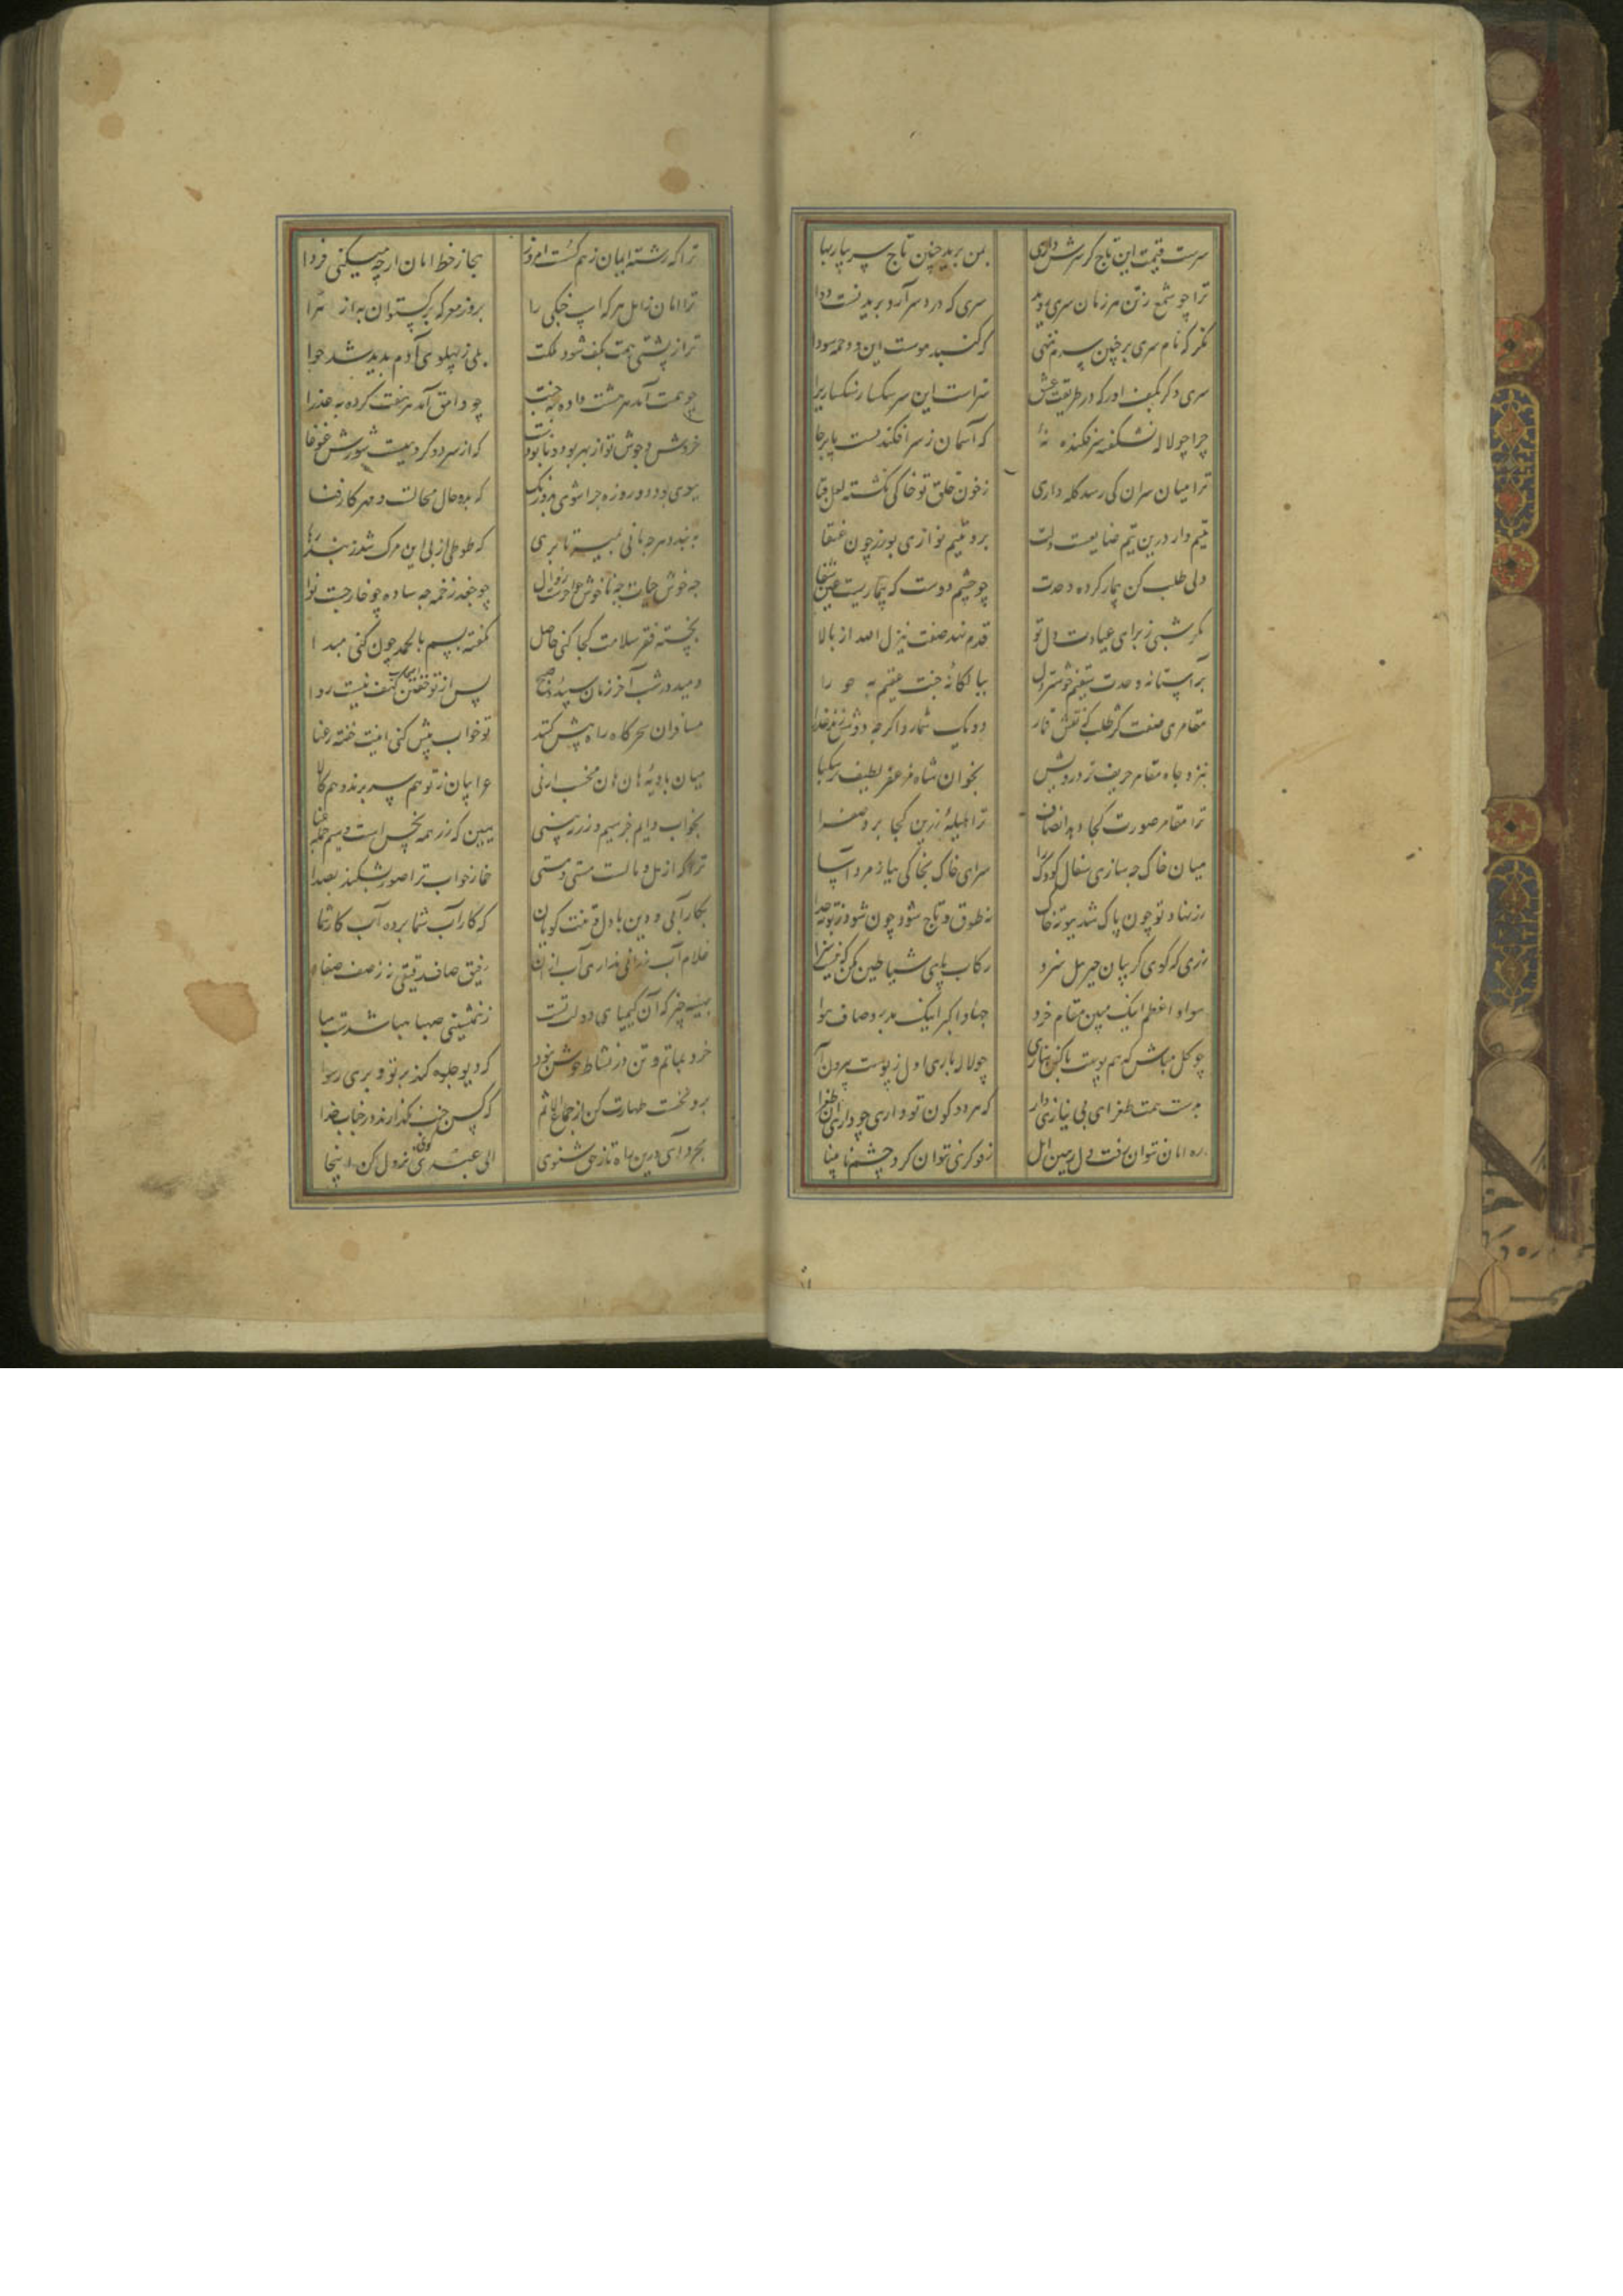 سرست قیمت این تاج کر سرش داری بمن یزید چنین تاج سر بیار بها
ترا چو شمع ز تن هر زمان سری روید سری که درد سر آرد برید نست دوا
نکر که نام سری بر چنین سر منهی که کنبد هوست این و دخمه سودا
سری دکر بکف آور که در طریقت عشق سزاست این سر سکسار سنکسار یرا
چرا چو لاله نشکفته سرفکنده نهٔ که آسمان ز سر افکندیست پا برجا
ترا میان سران کی رسد کله داری ز خون حلق تو خاکی نکشته لعل قبا
یتیم وار درین تیم ضایعست دلت برو یتیم نوازی بورز چون عنقا
دلی طلب کن بیمار کرده وحدت چو چشم دوست که بیماریست عین شفا
مکر شبی ز برای عیادت دل تو قدم نهد صفت ینزل الله از بالا
بر آستانه وحدت سقیم خوشتر دل بپا لکانهٔ جنت عقیم به حو را
مقامری صفتت کر طلب که نقش قمار دو یک شمارد اکر چه دو شش زند عذرا
بنزد جاه مقامر حریف نز درویش بخوان شاه مزعفر لطیف تر سکبا
ترا مقامر صورت کجا دهد انصاف ترا هلیلهٔ زرین کجا برد صفرا
میان خاک چه بازی سفال کودک وار سرای خاک بخاکی بیاز مرد آسا
زر نهاد تو چون پاک شد ببوته خاک نه طوق و تاج شود چون شود ز بوته جدا
زری که کوی کریبان جبریل سزد رکاب پای شیاطین مکن که نیست سزا
سواد اعظم اینک ببین مقام خرد جهاد اکبر اینک بدر و صاف هوا
چو کل مباش که هم پوست را کفن سازی چو لاله باری اول ز پوست بیرون آ
بدست همت طغرای بی نیازی دار که هر دو کون تو داری چو داری این طغرا
ره امان نتوان رفت و دل رهین امل رفو کری نتوان کرد و چشم نا بینا
ترا که رشته ایمان ز هم کسست امروز بجاز خط امان از چه میکنی فردا
ترا امان ز امل به که اسپ جنکی را بروز معرکه برکستوان به از هرا
ترا ز پشتی همت بکف شود ملکت بلی ز پهلوی آدم پدید شد حوا
چو همت آمد هر هشت داده به جنت چو وامق آمد هر هفت کرده به عذرا
خروش و جوش تو از بهر بود و نابودست که از سر دو کرو میست شورش و غوغا
ببوی دود دو روزه چرا شوی که بده حال محالست و مهر کار فنا
به بند دهر چه مانی بمیر تا برهی که طوطی از پی این مرک شد ز بند رها
چو جغد زخمه چه ساده چو خارجست نوا
بخسته فقر سلامت کجا کنی حاصل نکفته بسم بالحمد چون کنی مبدا
دمید در شب آخر زمان سپیده صبح پس از تو خفتن کهف نیست روا
مسافران بسحرکاه راه پیش کنند تو خواب بیش کنی اینت خفته رعنا
میان بادیهٔ هان و هان مخسب ارنی عرابیان ز تو هم سر برند و هم کالا
بخواب دایم جز سیم و زر نه بینی ببین که زر همه رنج است و سیم جمله عنا
ترا که از مل و مالست مستی و هستی خمار خواب ترا صور بشکند بصدا
بکار آبی و دین با دل و تنت کویان که کار آب شما برده آب کار شما
غلام آب رزانی نداری آب رزان رفیق صاف رحیقی نز صف صفا
بهینه چیز که آن کیمیای دولت تست ز همنشینی صهبا هبا شدت هبا
خرد بماتم و تن در نشاط خوش نبود که دیو جلوه کند بر تو و پری رسوا
برو نخست طهارت کن از جماع الاثم که کس جنب نکذارند در جناب خدا
بجرد آی درین راه تا ز حق شنوی الی عبدی نزول کن اینجا